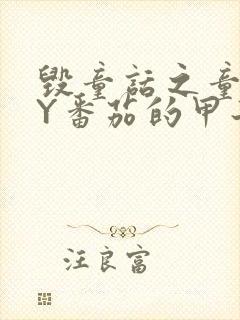 毁童话之童
Y番茄的甲
汪良富